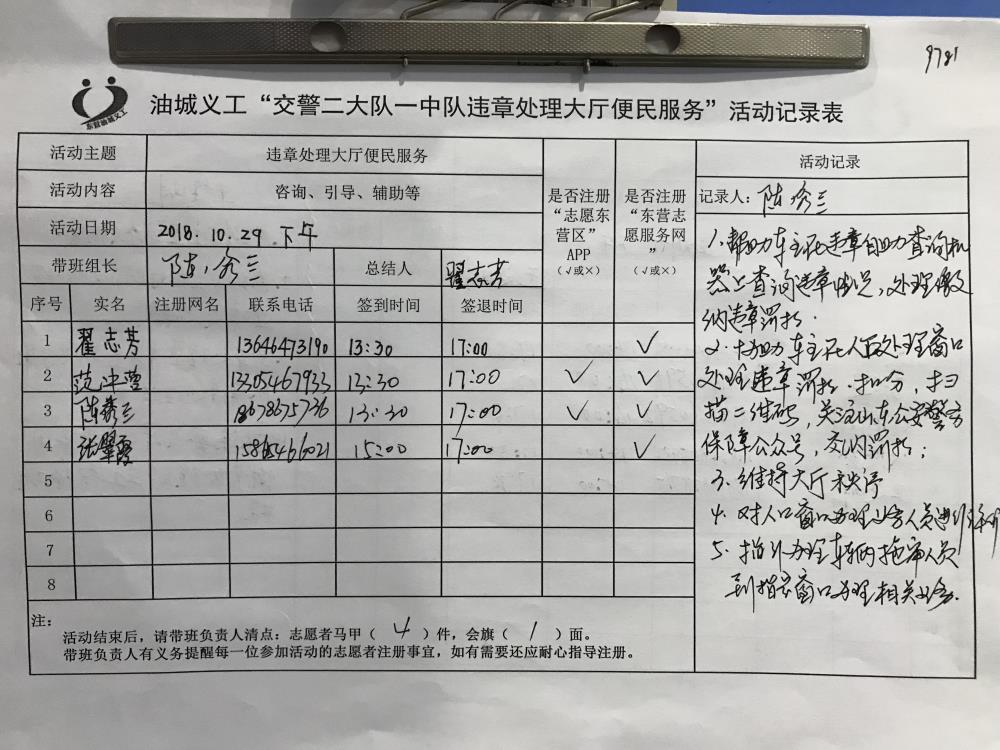 9781
东营油城义工
油城义工“交警二大队一中队违章处理大厅便民服务”活动记录表
活动主题 违章处理大厅便民服务
活动内容 咨询、引导、辅助等
活动日期 2018.10.29 下午
带班组长 陈秀三 总结人 翟志芳
是否注册“志愿东营区”APP（√或×）
是否注册“东营志愿服务网”（√或×）
序号 实名 注册网名 联系电话 签到时间 签退时间
1 翟志芳 13646473190 13:30 17:00 √
2 范冲 13305467933 13:30 17:00 √ √
3 陈秀三 18678675736 13:30 17:00 √ √
4 张翠霞 15865466021 15:00 17:00 √
5
6
7
8
注：
活动结束后，请带班负责人清点：志愿者马甲（ 4 ）件，会旗（ 1 ）面。
带班负责人有义务提醒每一位参加活动的志愿者注册事宜，如有需要还应耐心指导注册。
活动记录
记录人：陈秀三
1、帮助车主在违章自助查询机
器上查询违章情况，处理缴
纳违章罚款.
2.协助车主在人工处理窗口
处理违章罚款.扣分，扫
描二维码，关注山东公安警方
保障公众号，交纳罚款；
3.维持大厅秩序
4.对人口窗口办理业务人员进行
5.指引办理车辆拖审人员
到指定窗口办理相关业务.